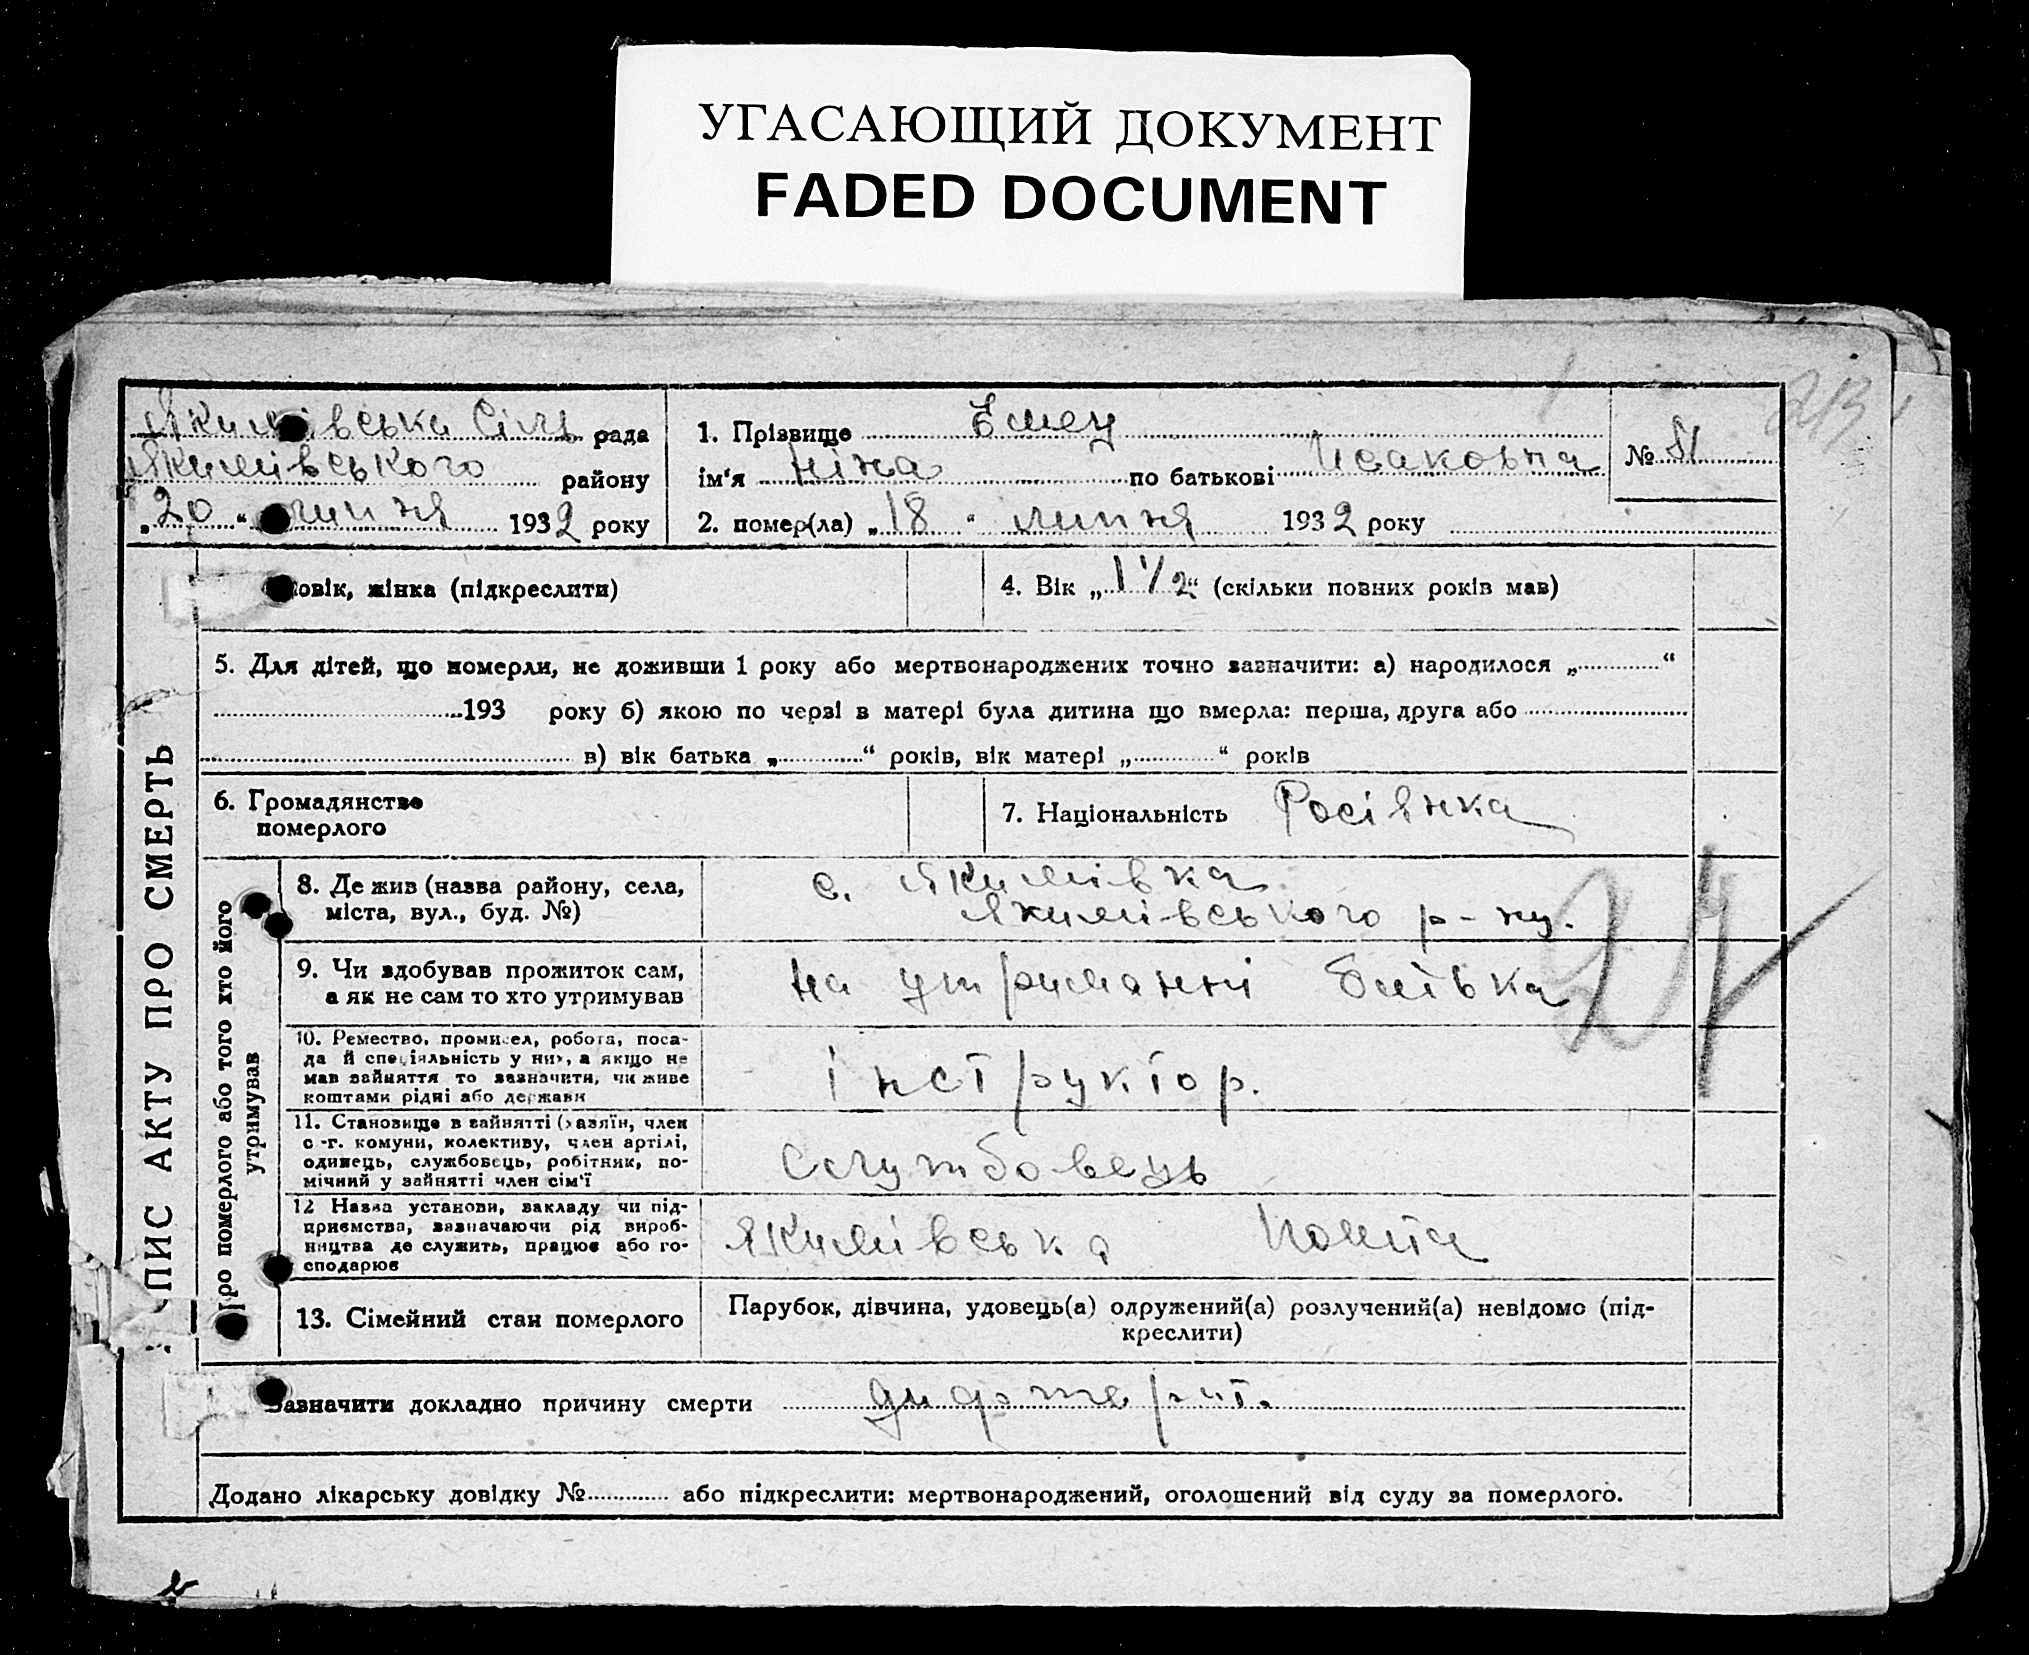 УГАСАЮЩИЙ ДОКУМЕНТ
FADED DOCUMENT
213
Якимівська Сіль рада
Якимівського району
„20“ липня 1932 року
1. Прізвище Емец
ім'я Ніна по батькові Исаковна
№ 51
2. помер(ла) „18“ липня 1932 року
ПИС АКТУ ПРО СМЕРТЬ
овік, жінка (підкреслити)
4. Вік „1 1/2“ (скільки повних років мав)
5. Для дітей, що померли, не доживши 1 року або мертвонароджених точно зазначити: а) народилося „ “
193 року б) якою по черзі в матері була дитина що вмерла: перша, друга або
в) вік батька „ “ років, вік матері „ “ років
6. Громадянство
померлого
7. Національність Росіянка
Про померлого або того хто його
утримував
8. Де жив (назва району, села,
міста, вул., буд. №)
с. Якимівка
Якимівського р-ну.
9. Чи здобував прожиток сам,
а як не сам то хто утримував
на утриманні батька
24
10. Ремество, промисел, робота, поса-
да й спеціяльність у них, а якщо не
мав зайняття то зазначити, чи живе
коштами рідні або держави
інструктор.
11. Становище в зайнятті (хазяїн, член
с-г. комуни, колективу, член артілі,
одинець, службовець, робітник, по-
мічний у зайнятті член сім'ї
Службовець
12 Назва установи, закладу чи під-
приємства, зазначаючи рід вироб-
ництва де служить, працює або го-
сподарює
Якимівська Пошта
13. Сімейний стан померлого
Парубок, дівчина, удовець(а) одружений(а) розлучений(а) невідомо (під-
креслити)
Зазначити докладно причину смерти дифтерит.
Додано лікарську довідку № або підкреслити: мертвонароджений, оголошений від суду за померлого.